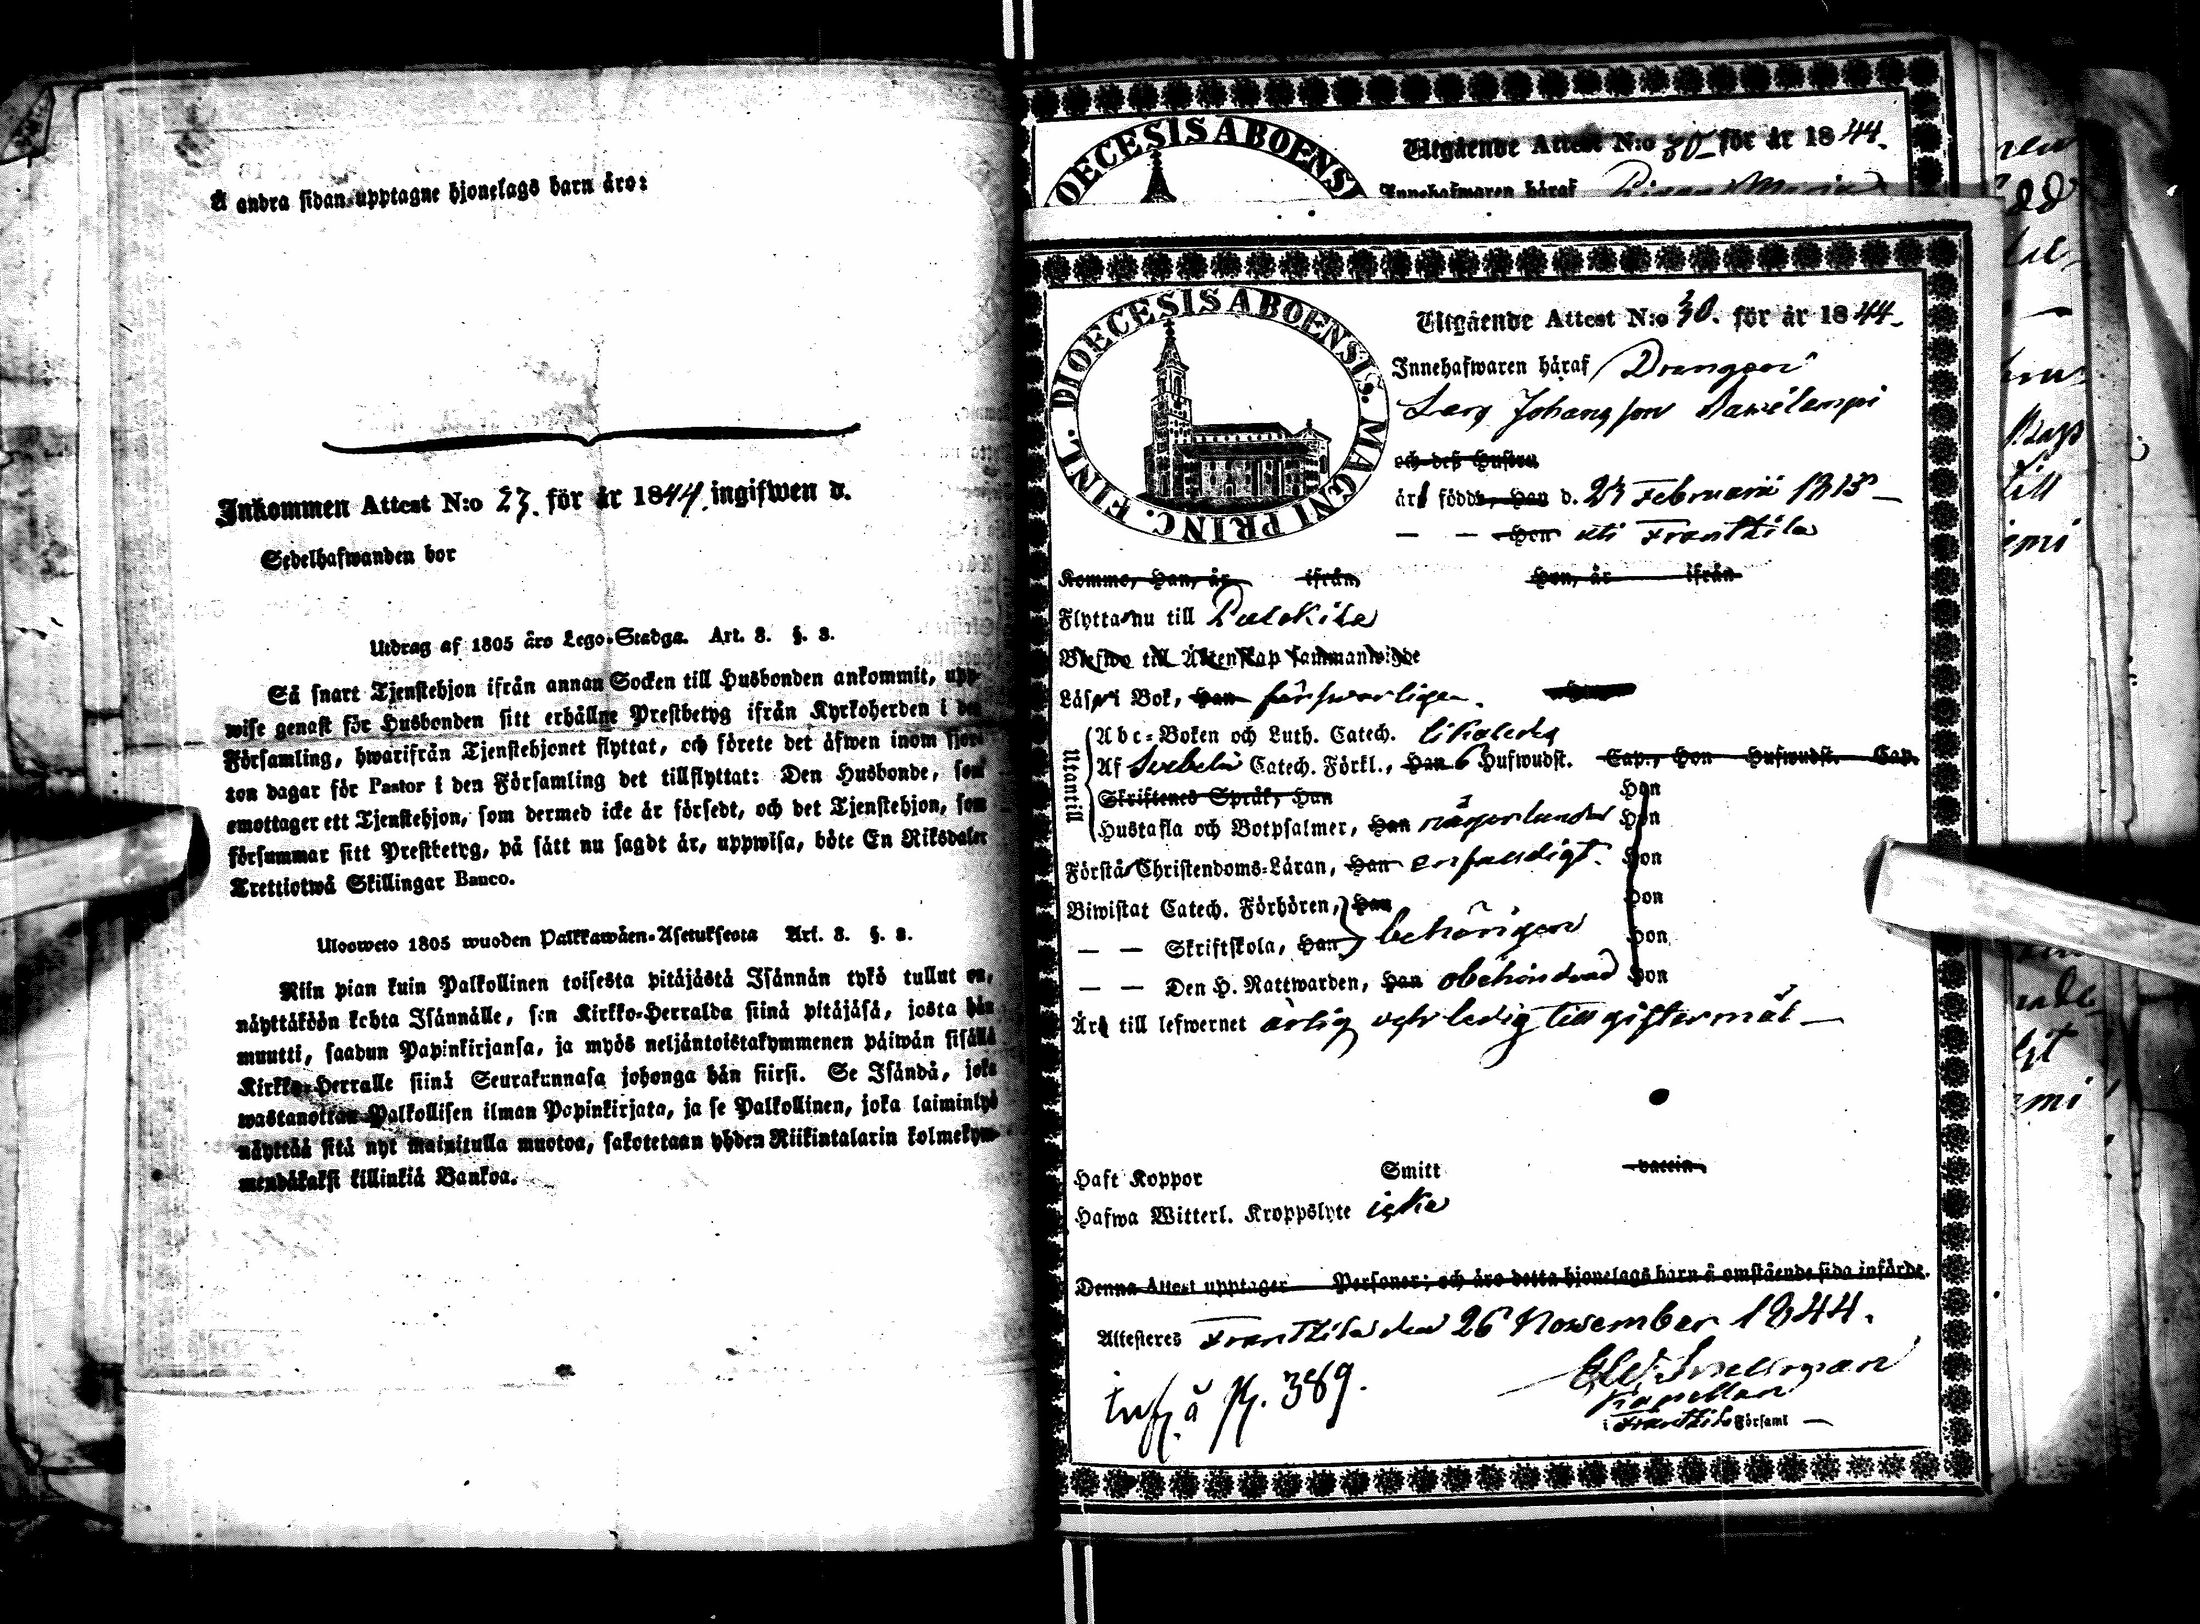 Å andra sidan upptagne hjonelags barn äro:
Inkommen Attest N:o 23. för år 1844. ingifwen d.
Sedelhafwanden bor
Utdrag af 1805 års Lego-Stadga. Art. 3. §. 3.
Så snart Tjenstehjon ifrån annan Socken till Husbonden ankommit, upp-
wise genast för Husbonden sitt erhållne Prestbetyg ifrån Kyrkoherden i den
Församling, hwarifrån Tjenstehjonet flyttat, och förete det äfwen inom fjor-
ton dagar för Pastor i den Församling det tillflyttat: Den Husbonde, som
emottager ett Tjenstehjon, som dermed icke är försedt, och det Tjenstehjon, som
försummar sitt Prestbetyg, på sätt nu sagdt är, uppwisa, böte En Riksdaler
Trettiotwå Skillingar Banco.
Ulosweto 1805 wuoden Palkkawäen-Asetuksesta Art. 3. §. 3.
Niin pian kuin Palkollinen toisesta pitäjästä Isännän tykö tullut on,
näyttäköön kohta Isännälle, sen Kirkko-Herralda siinä pitäjäsä, josta hän
muutti, saadun Papinkirjansa, ja myös neljäntoistakymmenen päiwän sisällä
Kirkko-Herralle siinä Seurakunnasa johonga hän siirsi. Se Isändä, joka
wastanottaa Palkollisen ilman Papinkirjata, ja se Palkollinen, joka laiminlyö
näyttää sitä nyt mainitulla muotoa, sakotetaan yhden Riikintalarin kolmekym-
mendäkaksi killinkiä Bankoa.
OECESIS ABOENSI
Utgående Attest N:o 30 för år 1844.
Innehafwaren häraf
DIOECESIS ABOENSIS. MAGNI PRINC. FINL.
Utgående Attest N:o 30. för år 1844.
Innehafwaren häraf Drängen
Lars Johansson
och dess Hustru
är födde, Han d. Februarii
— — Hon uti Frantsila
Komme, Han, år ifrån Hon, år ifrån
Flytta nu till Pulkkila
Blefwe till Äktenskap sammanwigde
Läsa i Bok, Han försvarligen.
Utantill
Abc-Boken och Luth. Catech. likaledes
Af Svebelii Catech. Förkl., Han 6 Hufwudst. Cap., Hon Hufwudst. Cap.
Skriftenes Språk, Han Hon
Hustafla och Botpsalmer, Han någorlunda Hon
Förstå Christendoms-Läran, Han enfaldigt. Hon
Biwistat Catech. Förhören, Han Hon
— — Skriftskola, Han behörigen Hon
— — Den H. Nattwarden, Han obehindrad Hon
Är till lefwernet ärlig och ledig till giftermål —
Haft Koppor Smitt vaccin
Hafwa Witterl. Kroppslyte icke
Denna Attest upptager Personer; och äro detta hjonelags barn å omstående sida införde.
Attesteres Frantsila den 26 November 1844.
Snellman
Kapellan
i Frantsila Församl —
inf. å p. 389.